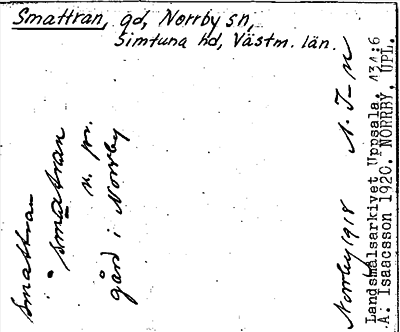 Smattran, gd, Norrby sn,
Simtuna hd, Västm. län.
Smattran
smatran
n. pr.
gård i Norrby
Norrby 1918
Landsmålsarkivet Uppsala. 131:6
A. Isaacsson 1920. NORRBY, UPL.